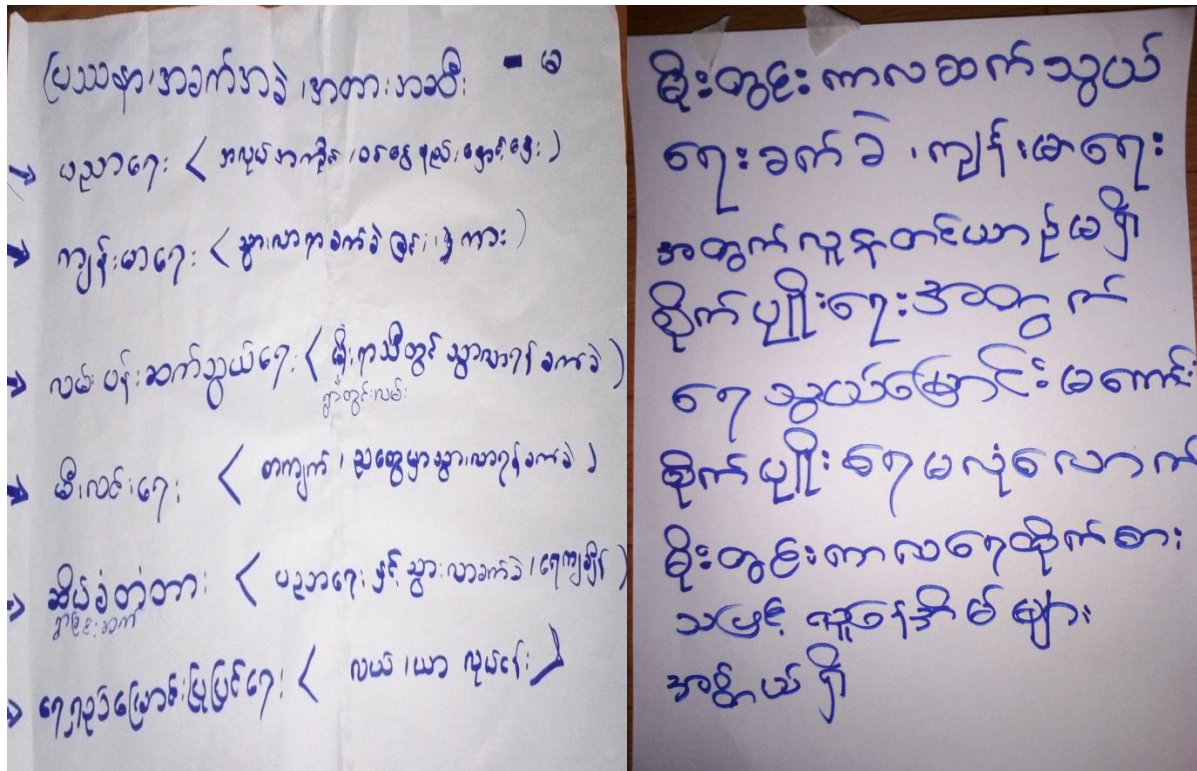 ပြဿနာ၊အခက်အခဲ၊အတားအဆီး - မ
→ ပညာရေး < အလုပ်အကိုင်၊ဝင်ငွေနည်း၊နှောင့်နှေး )
→ ကျန်းမာရေး < သွားလာရခက်ခဲခြင်း၊ ကား )
→ လမ်းပန်းဆက်သွယ်ရေး < မိုးရာသီတွင် သွားလာရန်ခက်ခဲ )
ရွာတွင်းလမ်း
→ မီးလင်းရေး < စာကျက်၊ ညတွေမှာသွားလာရန်ခက်ခဲ )
→ ဆိပ်ခံတံတား < ပညာရေးနှင့် သွားလာခက်ခဲ၊ရေကျချိန် )
ရွာချင်းဆက်
→ ရေနုတ်မြောင်းပြုပြင်ရေး < လယ်၊ယာ လုပ်ငန်း )
မိုးတွင်းကာလဆက်သွယ်
ရေးခက်ခဲ၊ကျန်းမာရေး
အတွက်လူနာတင်ယာဉ်မရှိ
စိုက်ပျိုးရေးအတွက်
ရေသွယ်မြောင်းမကောင်း
စိုက်ပျိုးရေမလုံလောက်
မိုးတွင်းကာလရေတိုက်စား
သဖြင့် လူနေအိမ်များ
အန္တရာယ်ရှိ